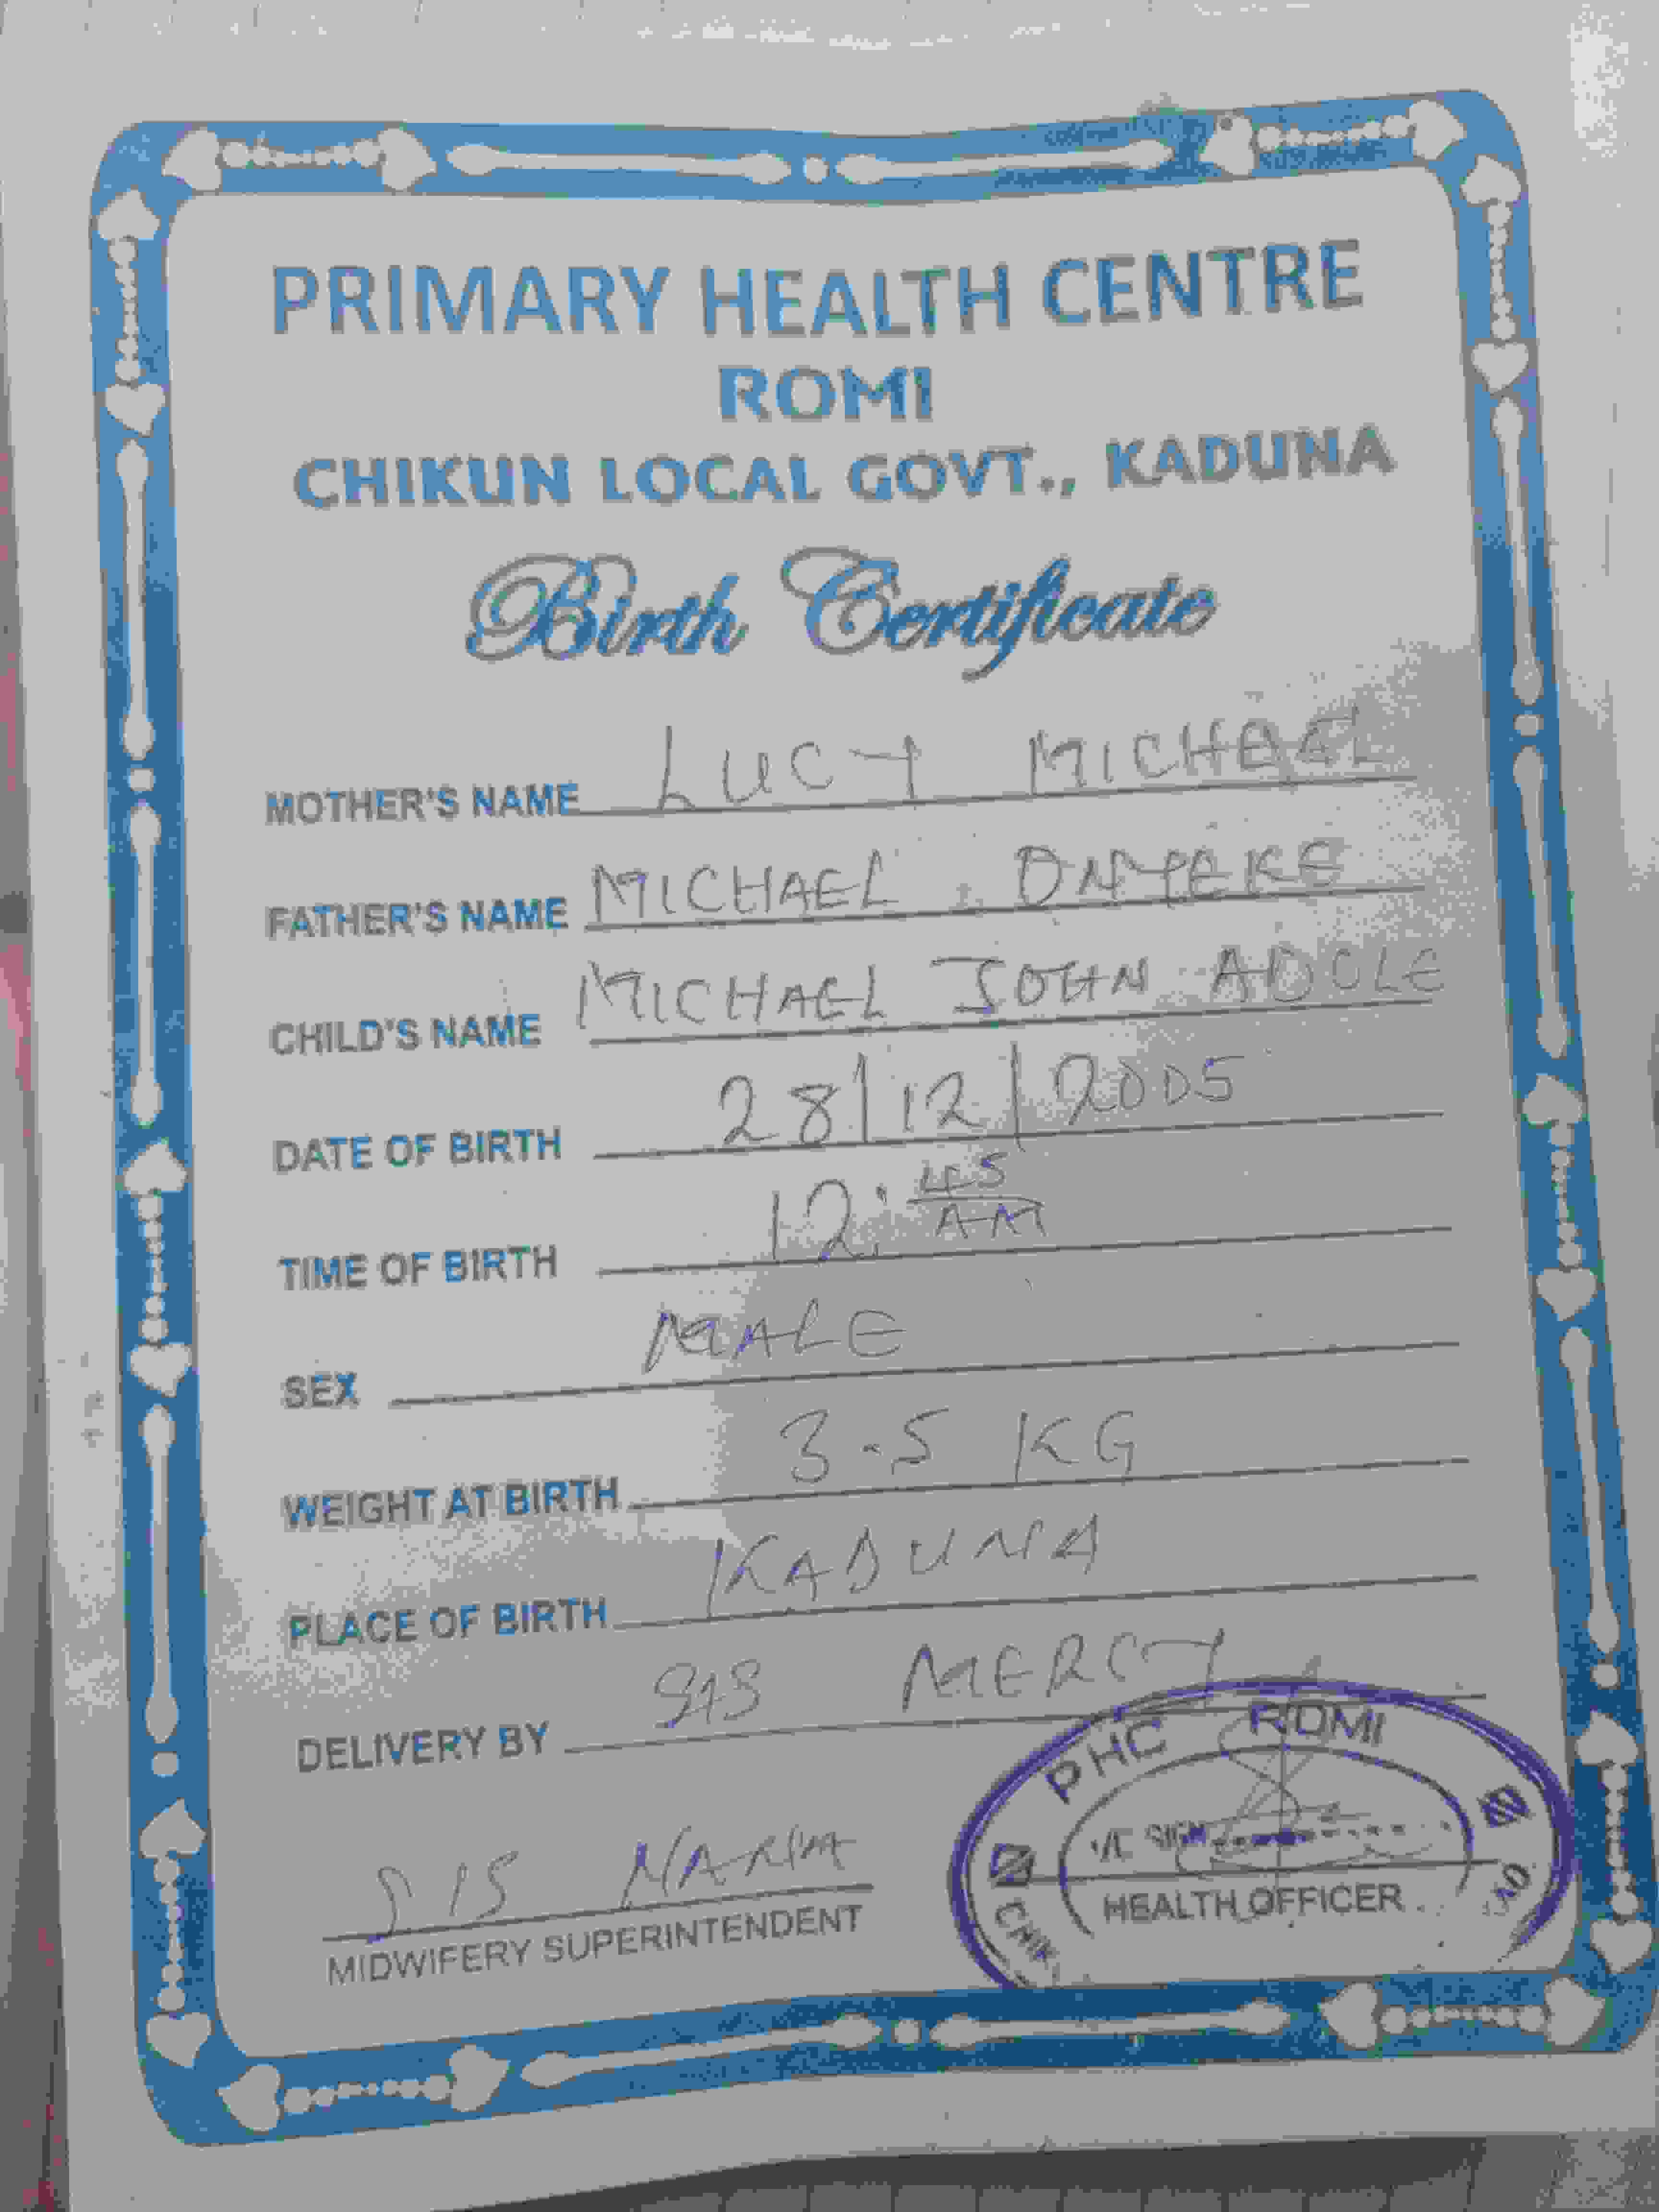 PRIMARY HEALTH CENTRE
ROMI
CHIKUN LOCAL GOVT., KADUNA
Birth Certificate
MOTHER'S NAME LUCY MICHAEL
FATHER'S NAME MICHAEL ONYEKE
CHILD'S NAME MICHAEL JOHN ADOLE
DATE OF BIRTH 28/12/2005
TIME OF BIRTH 12:45 AM
SEX MALE
WEIGHT AT BIRTH 3.5 KG
PLACE OF BIRTH KADUNA
DELIVERY BY SIS MERCY
PHC ROMI
SIGN
SIS
MIDWIFERY SUPERINTENDENT
HEALTH OFFICER
CHIK